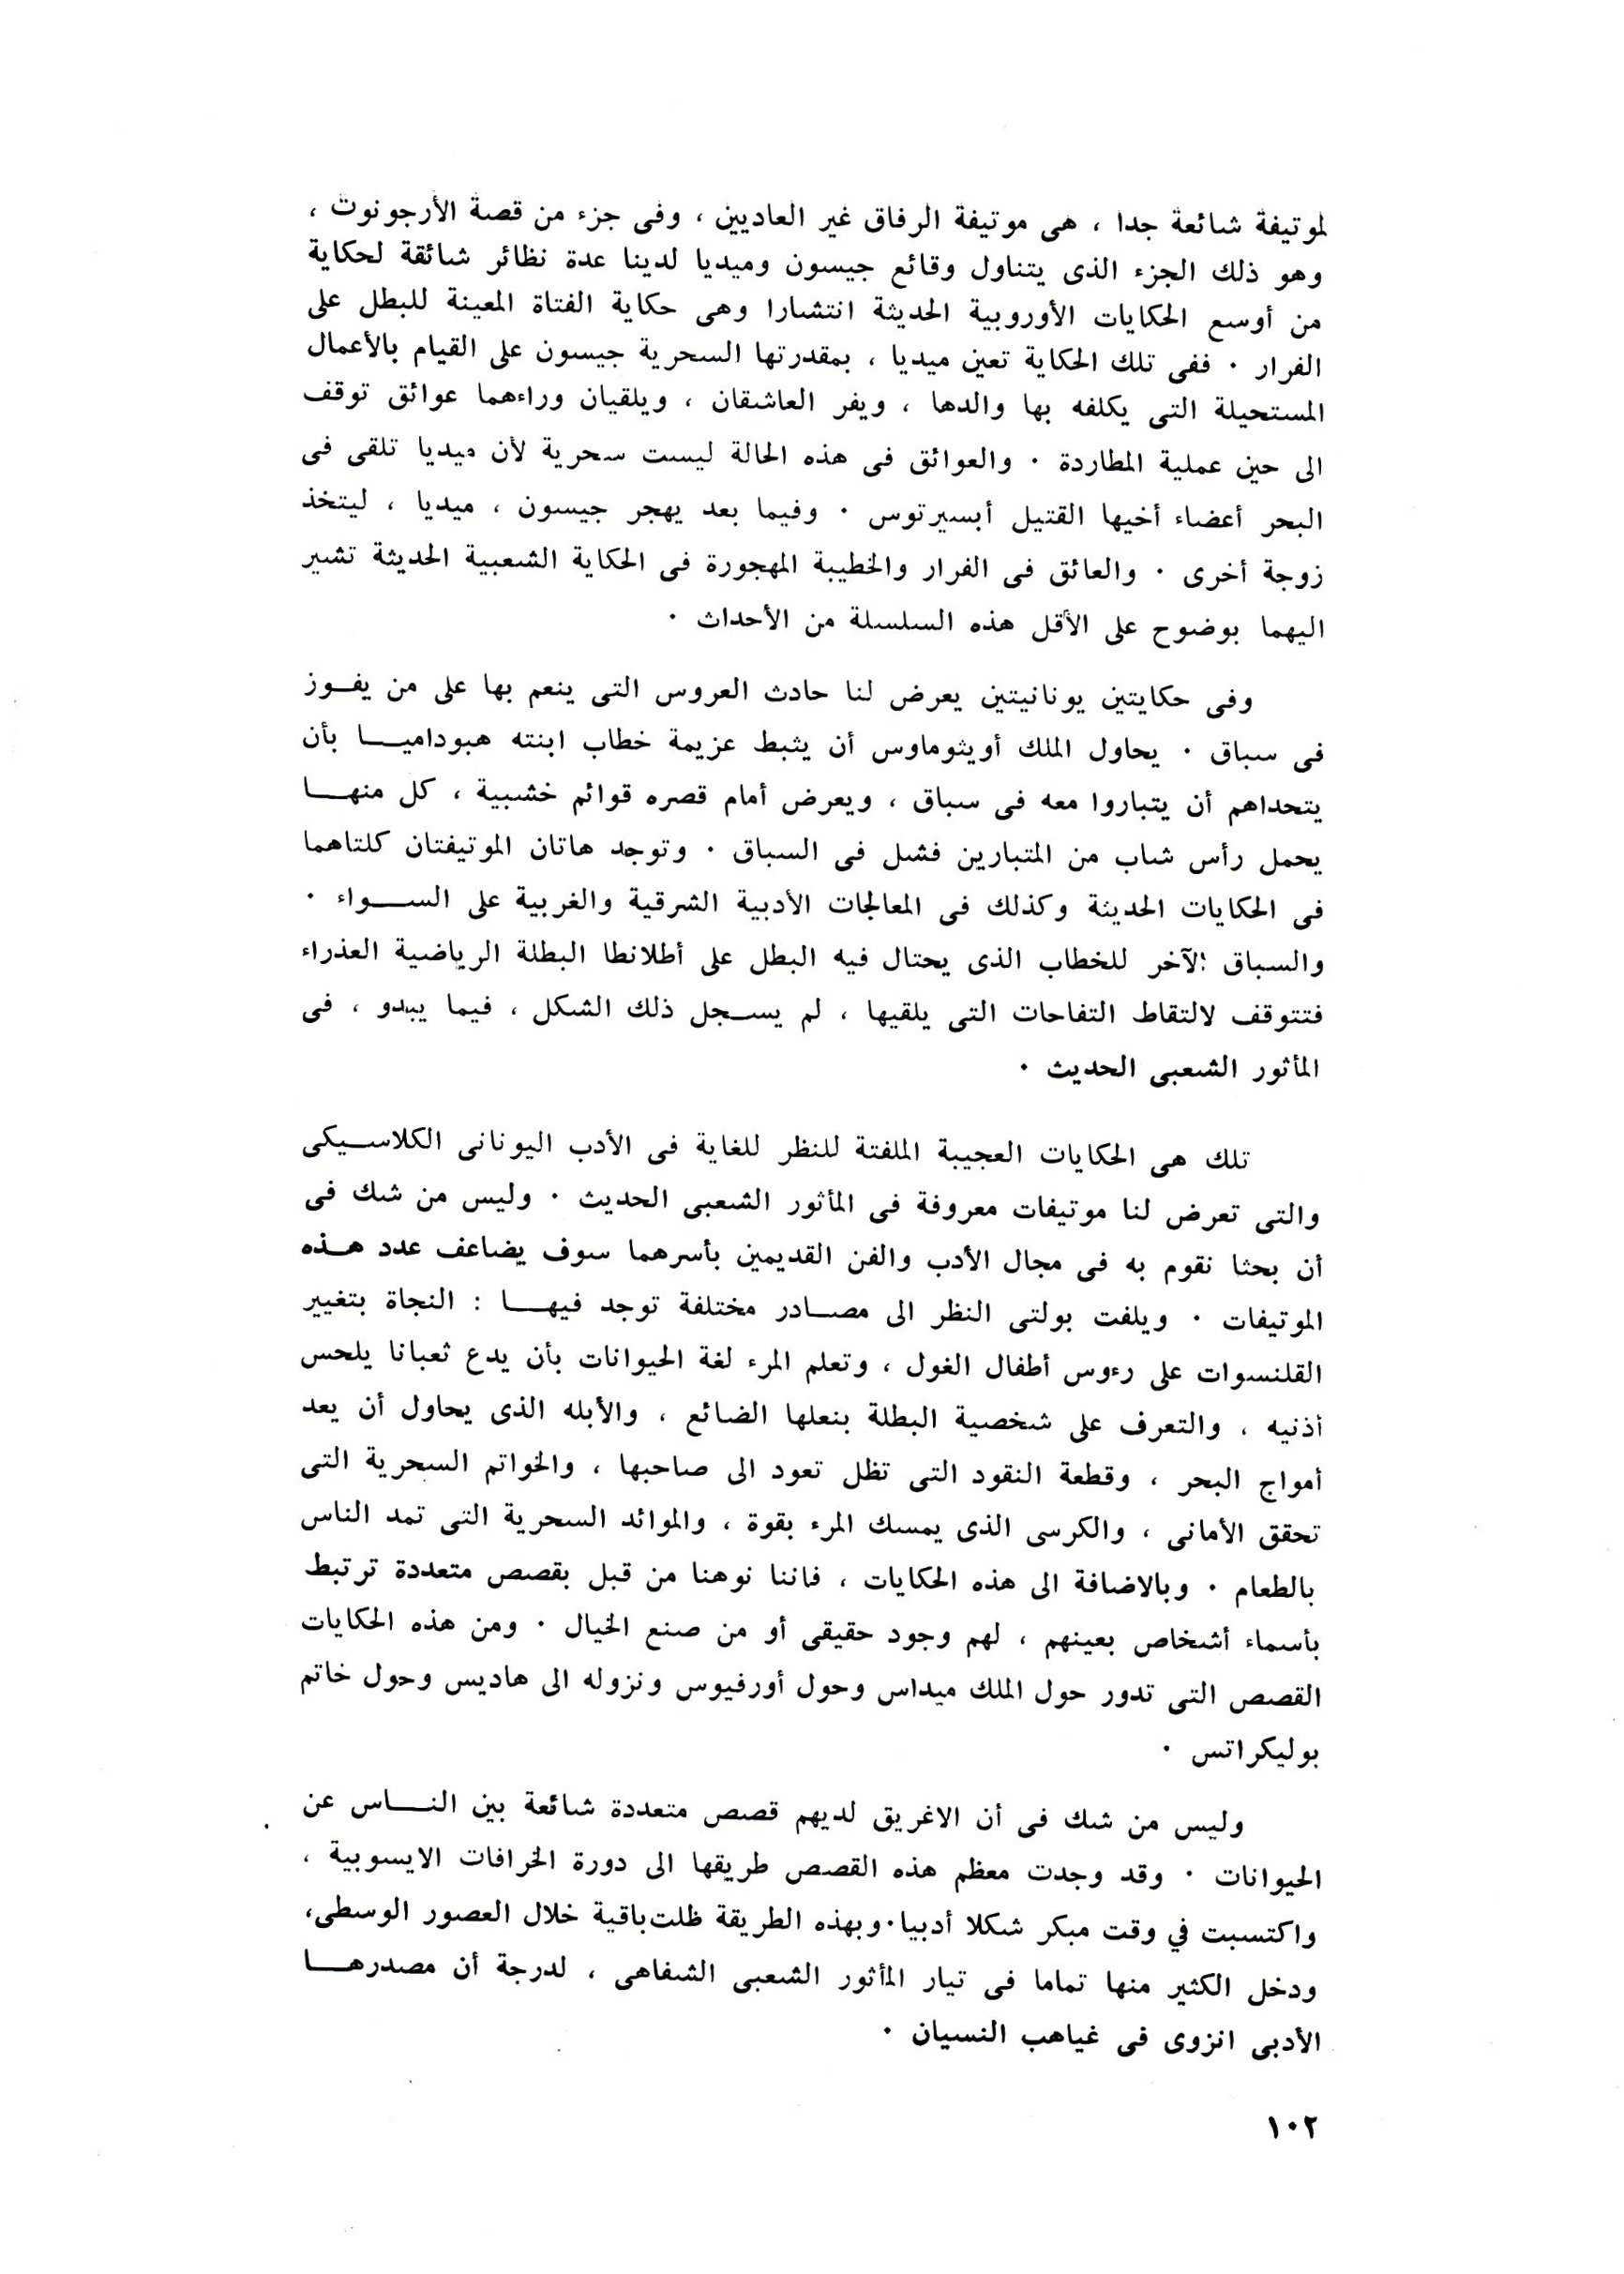 لموتيفة شائعة جدا ، هى موتيفة الرفاق غير العاديين ، وفى جزء من قصة الأرجونوت ،
وهو ذلك الجزء الذى يتناول وقائع جيسون وميديا لدينا عدة نظائر شائقة لحكاية
من أوسع الحكايات الأوروبية الحديثة انتشارا وهى حكاية الفتاة المعينة للبطل على
الفرار . ففى تلك الحكاية تعين ميديا ، بمقدرتها السحرية جيسون على القيام بالأعمال
المستحيلة التى يكلفه بها والدها ، ويفر العاشقان ، ويلقيان وراءهما عوائق توقف
الى حين عملية المطاردة . والعوائق فى هذه الحالة ليست سحرية لأن ميديا تلقى فى
البحر أعضاء أخيها القتيل أبسيرتوس . وفيما بعد يهجر جيسون ، ميديا ، ليتخذ
زوجة أخرى . والعائق فى الفرار والخطيبة المهجورة فى الحكاية الشعبية الحديثة تشير
اليهما بوضوح على الأقل هذه السلسلة من الأحداث .
وفى حكايتين يونانيتين يعرض لنا حادث العروس التى ينعم بها على من يفــوز
فى سباق . يحاول الملك أويثوماوس أن يثبط عزيمة خطاب ابنته هبوداميــا بأن
يتحداهم أن يتباروا معه فى سباق ، ويعرض أمام قصره قوائم خشبية ، كل منهــا
يحمل رأس شاب من المتبارين فشل فى السباق . وتوجد هاتان الموتيفتان كلتاهما
فى الحكايات الحديثة وكذلك فى المعالجات الأدبية الشرقية والغربية على الســواء .
والسباق الآخر للخطاب الذى يحتال فيه البطل على أطلانطا البطلة الرياضية العذراء
فتتوقف لالتقاط التفاحات التى يلقيها ، لم يســجل ذلك الشكل ، فيما يبدو ، فى
المأثور الشعبى الحديث .
تلك هى الحكايات العجيبة الملفتة للنظر للغاية فى الأدب اليونانى الكلاســيكى
والتى تعرض لنا موتيفات معروفة فى المأثور الشعبى الحديث . وليس من شك فى
أن بحثا نقوم به فى مجال الأدب والفن القديمين بأسرهما سوف يضاعف عدد هــذه
الموتيفات . ويلفت بولتى النظر الى مصــادر مختلفة توجد فيهــا : النجاة بتغيير
القلنسوات على رءوس أطفال الغول ، وتعلم المرء لغة الحيوانات بأن يدع ثعبانا يلحس
أذنيه ، والتعرف على شخصية البطلة بنعلها الضائع ، والأبله الذى يحاول أن يعد
أمواج البحر ، وقطعة النقود التى تظل تعود الى صاحبها ، والخواتم السحرية التى
تحقق الأمانى ، والكرسى الذى يمسك المرء بقوة ، والموائد السحرية التى تمد الناس
بالطعام . وبالاضافة الى هذه الحكايات ، فاننا نوهنا من قبل بقصص متعددة ترتبط
بأسماء أشخاص بعينهم ، لهم وجود حقيقى أو من صنع الخيال . ومن هذه الحكايات
القصص التى تدور حول الملك ميداس وحول أورفيوس ونزوله الى هاديس وحول خاتم
بوليكراتس .
وليس من شك فى أن الاغريق لديهم قصص متعددة شائعة بين النــاس عن
الحيوانات . وقد وجدت معظم هذه القصص طريقها الى دورة الخرافات الايسوبية ،
واكتسبت في وقت مبكر شكلا أدبيا . وبهذه الطريقة ظلت باقية خلال العصور الوسطى،
ودخل الكثير منها تماما فى تيار المأثور الشعبى الشفاهى ، لدرجة أن مصدرهــا
الأدبى انزوى فى غياهب النسيان .
١٠٢